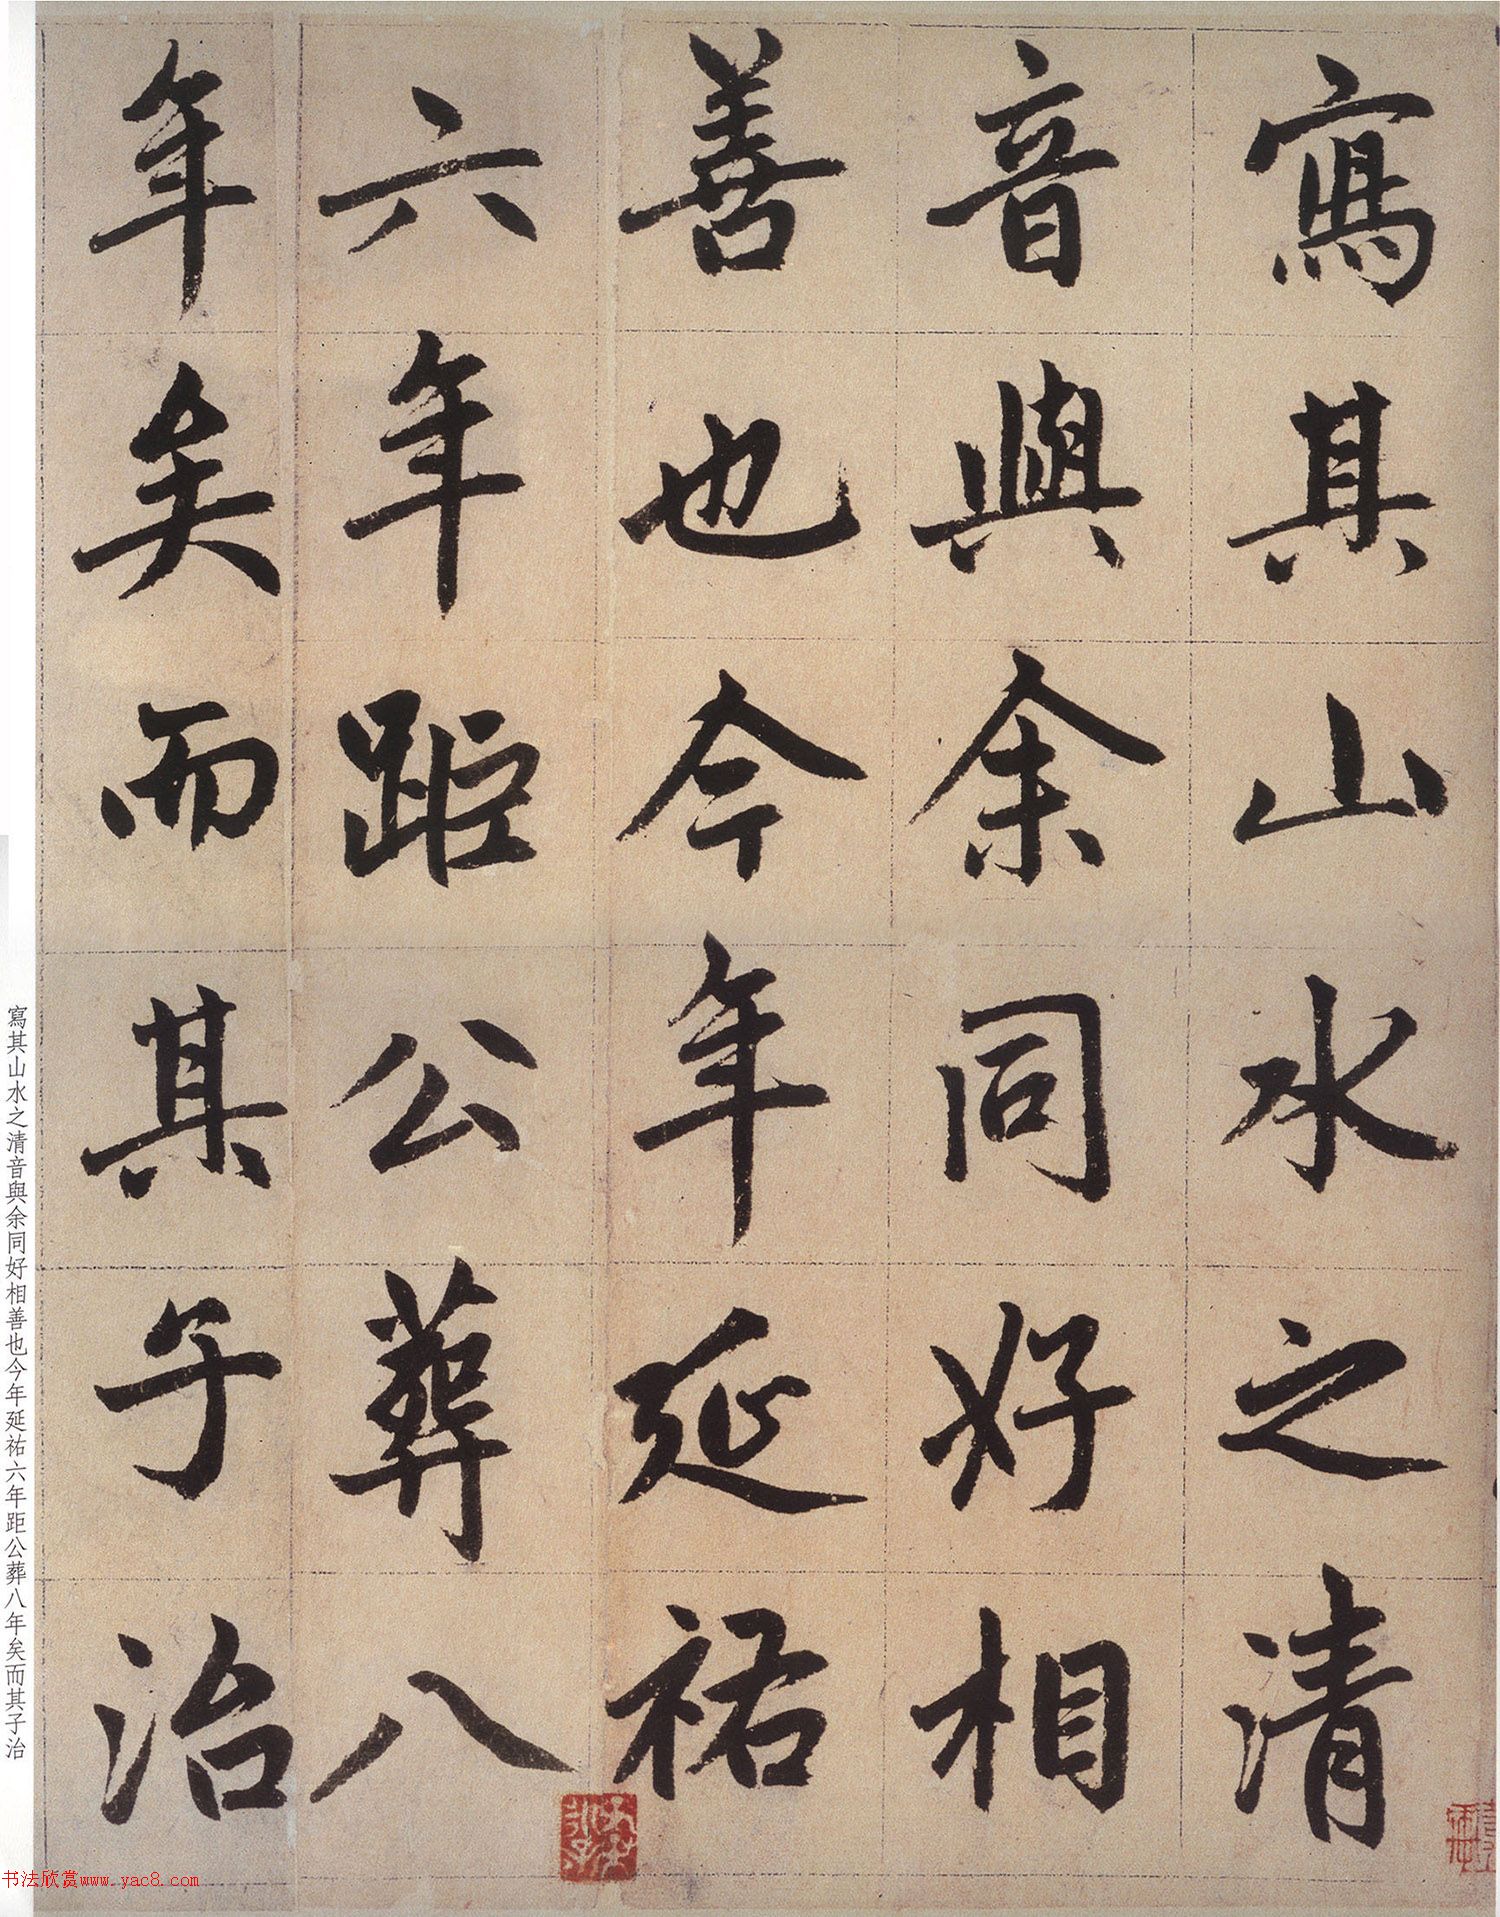 寫其山水之清
音與余同好相
善也今年延祐
六年距公葬八
年矣而其子治
寫其山水之清音與余同好相善也今年延祐六年距公葬八年矣而其子治
书法欣赏www.yac8.com